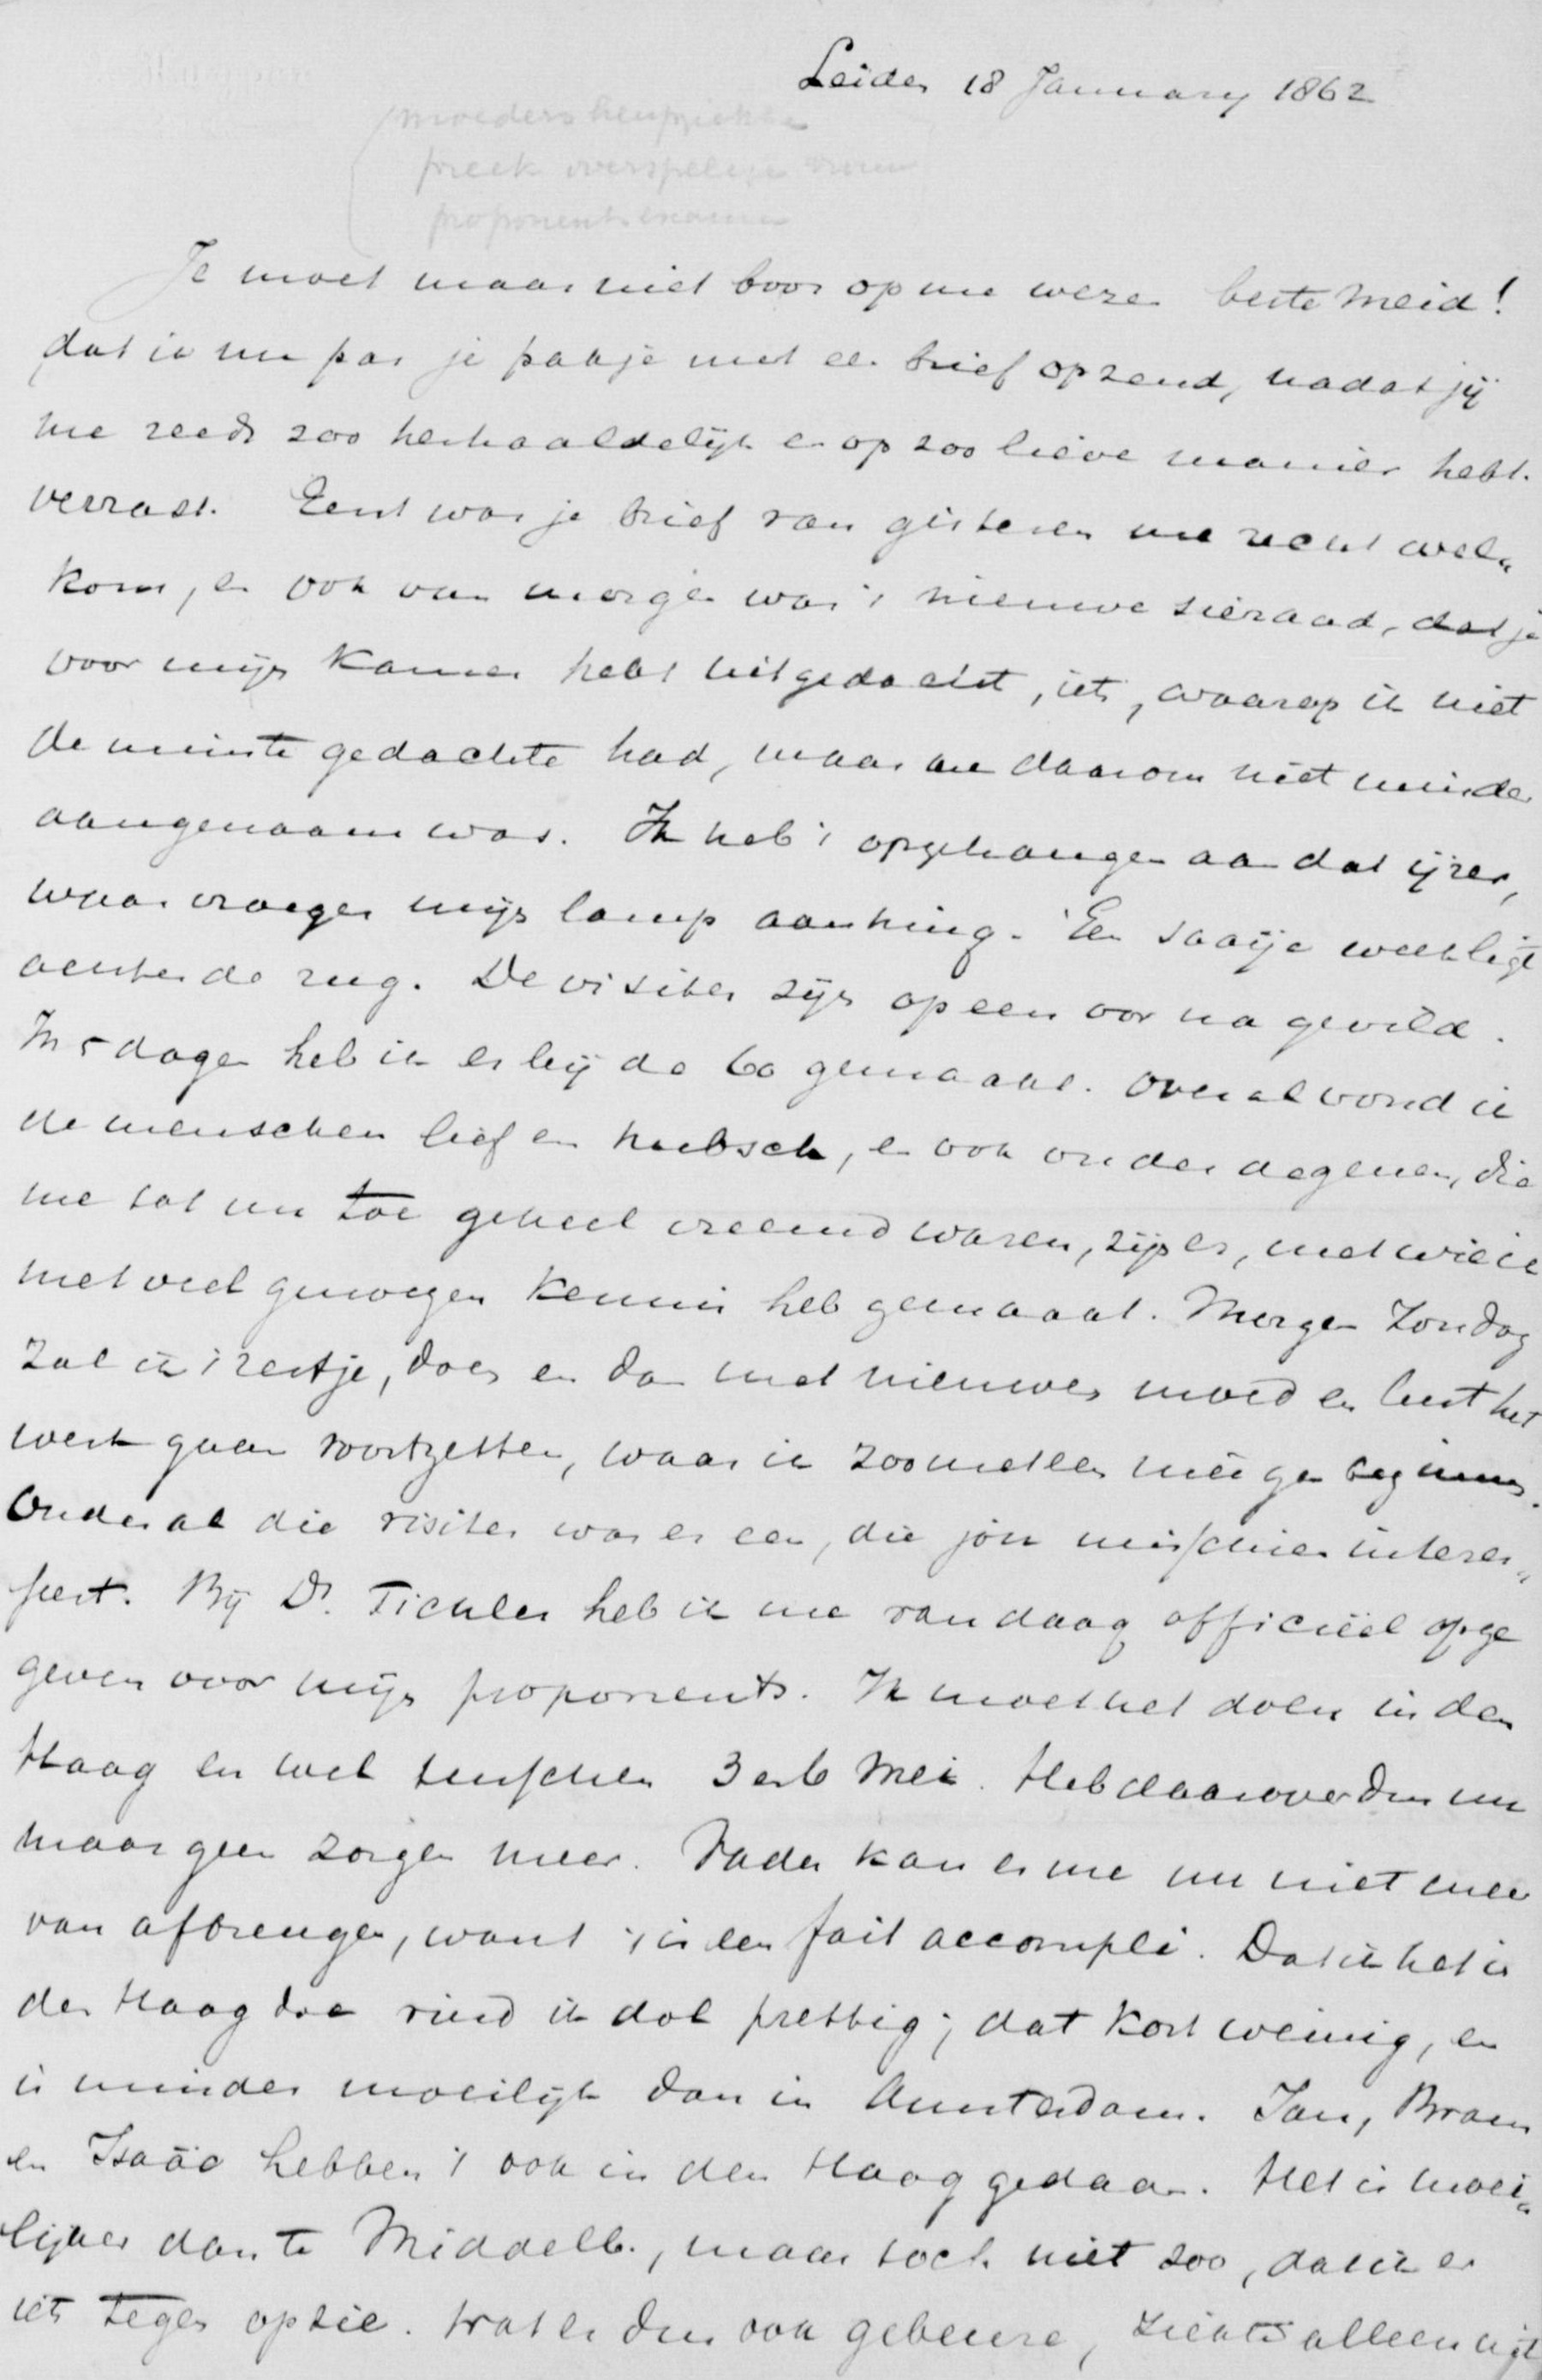 Leiden 18 January 1862
moeders
preek overspelige vrouw
proponentsexamen
Je moet maar niet boos op me wezen beste meid!
dat ik nu pas je pakje met een brief opzend, nadat jij
me reeds zoo herhaaldelijk en op zoo lieve manier hebt
verrast. Eerst was je brief van gisteren me recht wel„
kom, en ook van morgen was 't nieuwe sieraad, dat je
voor mijn kamer hebt uitgedacht, iets, waarop ik niet
de minste gedachte had, maar me daarom niet minder
aangenaam was. Ik heb 't opgehangen aan dat ijzer,
waar vroeger mijn lamp aanhing. 'En saaije week ligt
achter de rug. De visites zijn op een oor na gevild.
In 5 dagen heb ik er bij de 60 gemaakt. Overal vond ik
de menschen lief en heusch, en ook onder degenen, die
me tot nu toe geheel vreemd waren, zijn er, met wie ik
met veel genoegen kennis heb gemaakt. Morgen Zondag
zal ik 't restje doen en dan met nieuwen moed en lust het
werk gaan voortzetten, waar ik zoo mede ging beginnen.
Onder al die visites was er een, die jou misschien interes„
seert. Bij Ds. Tichler heb ik me vandaag officieel opge
geven voor mijn proponents. Ik moet het doen in den
Haag en wel tusschen 3 en 6 Mei. Heb daarover dus nu
maar geen zorgen meer. Vader kan er me nu niet meer
van afbrengen, want 't is een fait accompli. Dat ik het in
den Haag doe vind ik dol prettig; dat kost weinig, en
is minder moeilijk dan in Amsterdam. Jan, Bram
en Isaäc hebben 't ook in den Haag gedaan. Het is moei„
lijker dan te Middelb., maar toch niet zoo, dat ik er
iets tegen opzie. Wat er dus ook gebeure, alleen